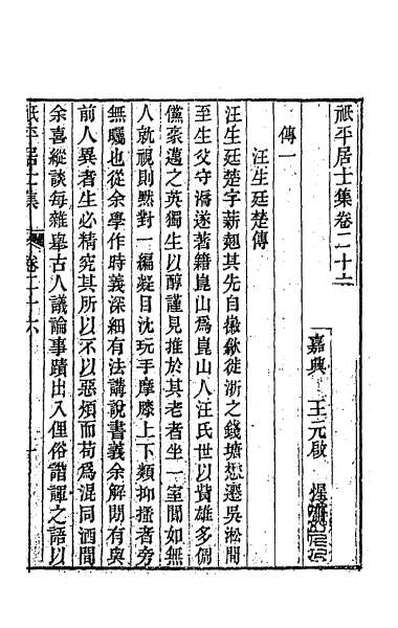 祇平居士集卷二十六
嘉興 王元啟 惺齋
傳一
汪生廷楚傳
汪生廷楚字薪翹其先自徽歙徙浙之錢塘愁遷吳淞間
至生父守潯遂著籍崑山為崑山人汪氏世以貲雄多倜
儻豪邁之英獨生以醇謹見推於其老者坐一室閴如無
人就視則黙對一編凝目沈玩手摩膝上下類抑搔者旁
無矚也從余學作時義深細有法講說書義余解間有與
前人異者生必精究其所以不以惡煩而苟為混同酒間
余喜縱談每雜舉古人議論事蹟出入俚俗諧謔之語以
祇平居士集 卷二十六 一